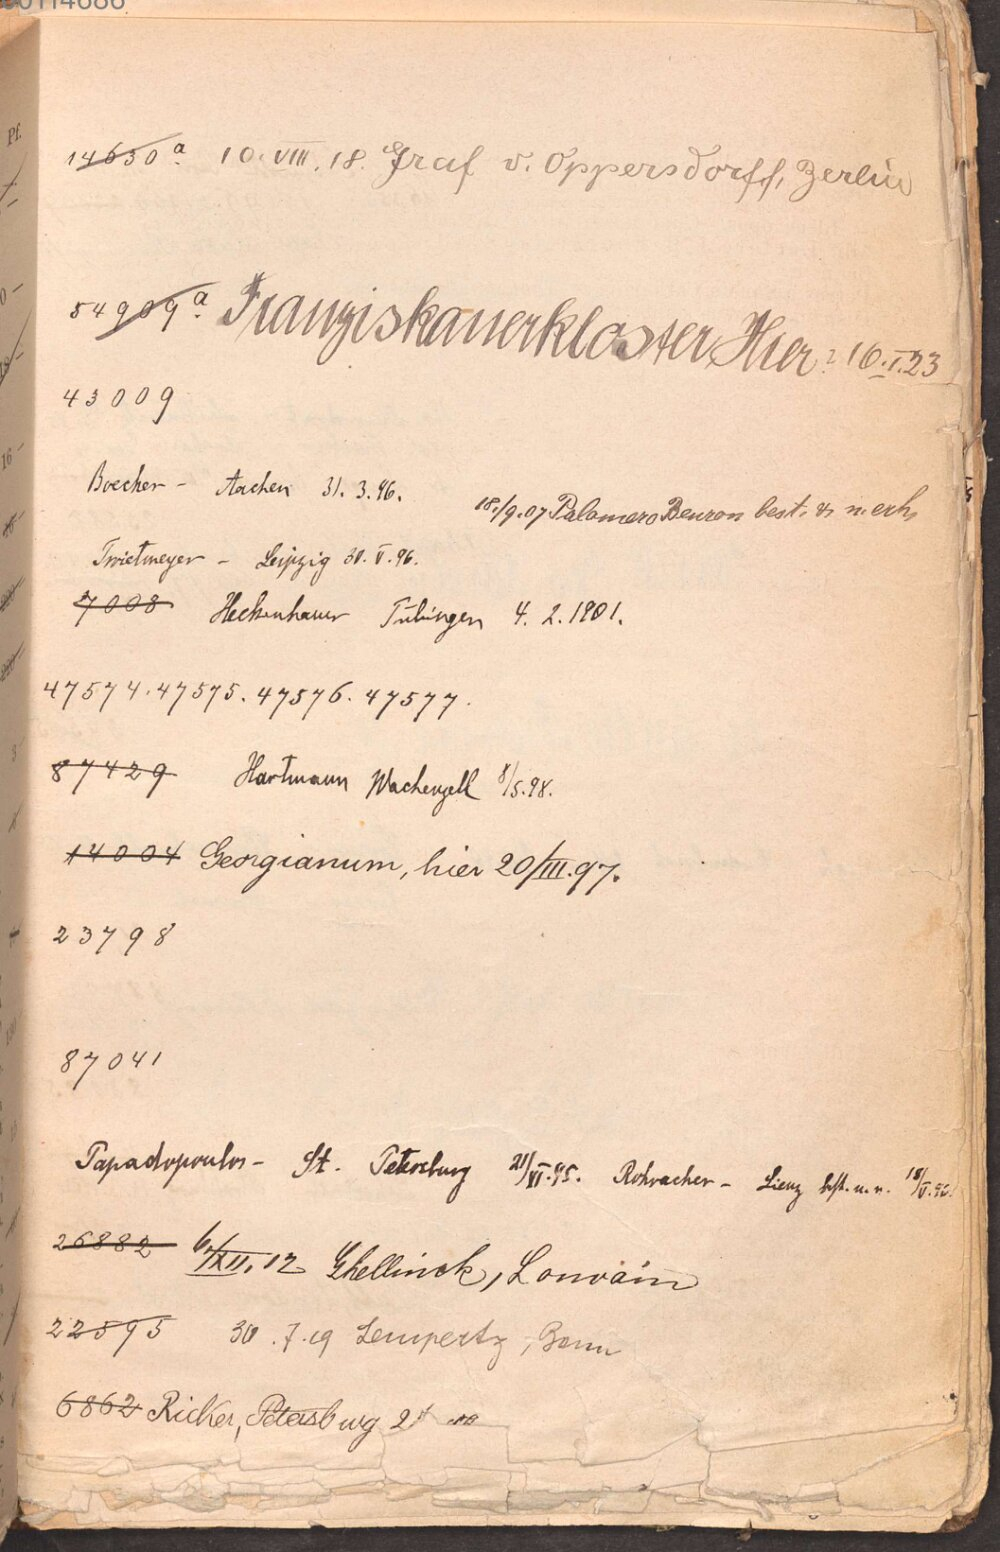 00114686
Pf.
14630 a. 10. VIII. 18. Graf v. Oppersdorff, Berlin
54909 a. Franziskanerkloster, Hier: 16.I.23
43009
Boecker - Aachen 31. 3. 96.
18./9.07 Palomero Beuron best. n. erh.
Twietmeyer - Leipzig 30. V. 96.
7008 Heckenhauer Tübingen 4. 2. 1901.
47574. 47575. 47576. 47577.
87429 Hartmann 8/5.98.
14004 Georgianum, hier 20/III.97.
23798
87041
Papadopoulos - St. Petersburg 21/VI.95. Rohracher - Lienz best. u. n.
26882 6/XII.12 Ghellinck, Louvain
22595 30.7.19 Lempertz, Bonn
6862 Ricker, Petersburg